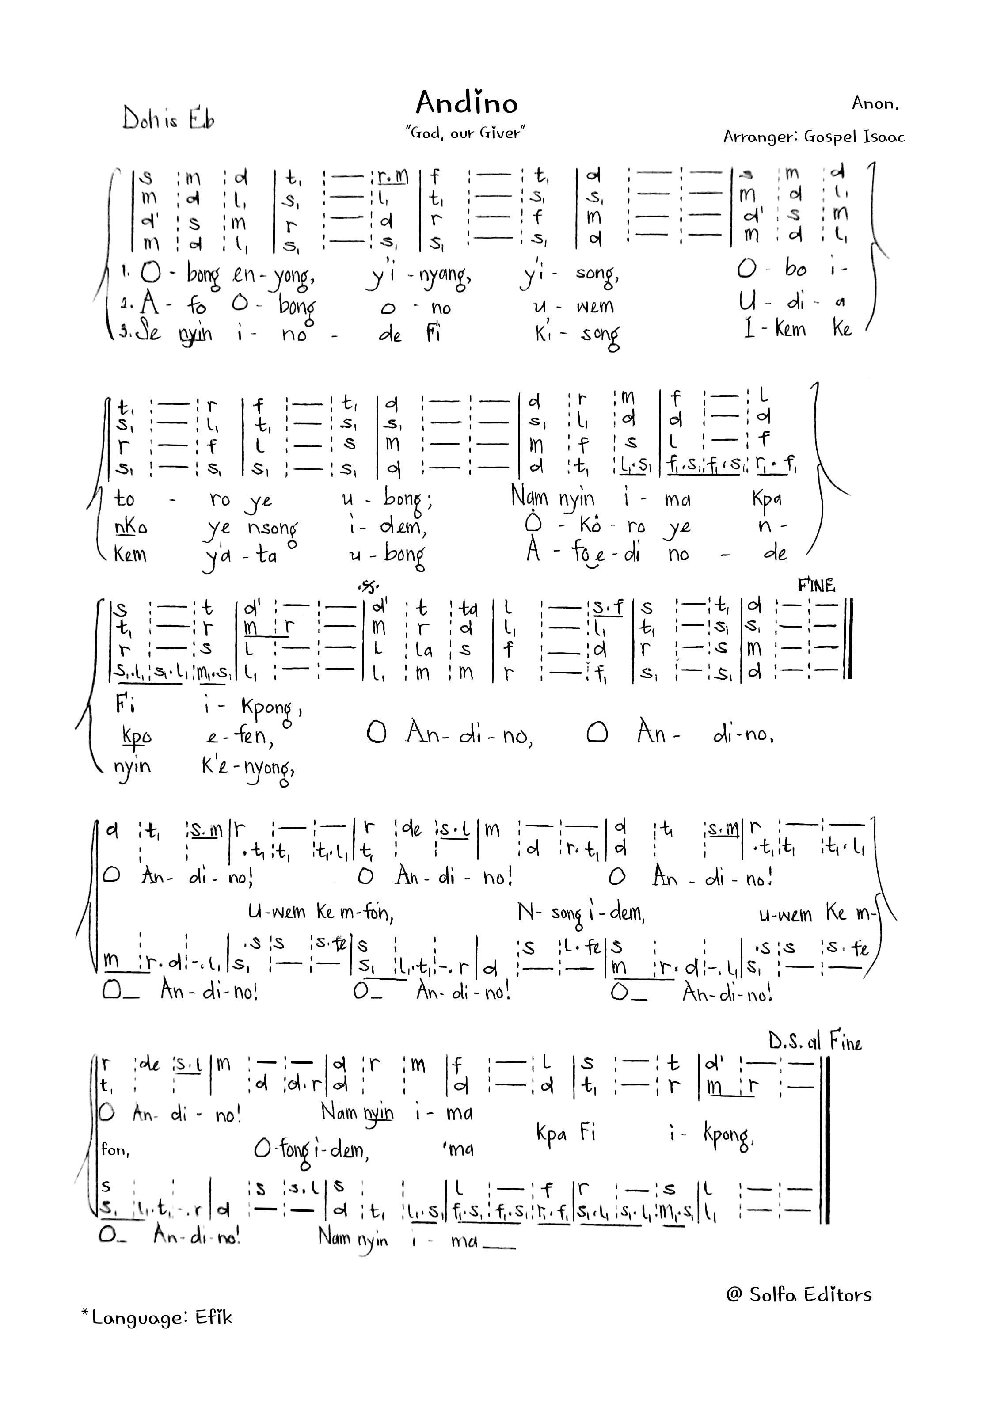 Andino
Doh is Eb
Anon.
"God, our Giver"
Arranger: Gospel Isaac
s :m :d | t, :— :r.m | f :— :t, | d :— :— | s :m :d
m :d :l, | s, :— :l, | t, :— :s, | s, :— :— | m :d :l,
d' :s :m | r :— :d | r :— :f | m :— :— | d' :s :m
m :d :l, | s, :— :s, | s, :— :s, | d :— :— | m :d :l,
1. O - bong en-yong, yi - nyang, yi - song, O - bo i-
2. A - fo O - bong o - no u - wem U - di - a
3. Se nyin i - no - de Fi Ki - song I - kem Ke
t, :— :r | f :— :t, | d :— :— | d :r :m | f :— :l
s, :— :l, | t, :— :s, | s, :— :— | s, :l, :d | d :— :d
r :— :f | l :— :s | m :— :— | m :f :s | l :— :f
s, :— :s, | s, :— :s, | d :— :— | d :t, :l,.s, | f,.s,:f,.s,:r,.f,
to - ro ye u - bong; Nam nyin i - ma Kpa
nKo ye nsong i - dem, O - Kô - ro ye n -
Kem ya - ta u - bong A - fo e - di no - de
.S. FINE
s :— :t | d' :— :— | d' :t :ta | l :— :s.f | s :— :t, | d :— :—
t, :— :r | m :r :— | m :r :d | l, :— :l, | t, :— :s, | s, :— :—
r :— :s | l :— :— | l :la :s | f :— :d | r :— :s | m :— :—
s,.l,:s,.l,:m,.s, | l, :— :— | l, :m :m | r :— :f, | s, :— :s, | d :— :—
Fi i - Kpong,
kpo e - fen, O An - di - no, O An - di-no.
nyin K'e - nyong,
d :t, :s.m | r :— :— | r :de :s.l | m :— :— | d :t, :s.m | r :— :—
: : | .t,:t, :t,.l, | t, : : | :d :r.t, | d : : | .t,:t, :t,.l,
O An - di - no! O An - di - no! O An - di - no!
U-wem Ke m-fon, N- song i-dem, u-wem Ke m-
: : | .s :s :s.fe | s : : | :s :l.fe | s : : | .s :s :s.fe
m :r.d:-.l, | s, :— :— | s, :l,.t,:-.r | d :— :— | m :r.d:-.l, | s, :— :—
O_ An-di-no! O_ An-di-no! O_ An-di-no!
D.S. al Fine
r :de :s.l | m :— :— | d :r :m | f :— :l | s :— :t | d' :— :—
t, : : | :d :d.r | d : : | d :— :d | t, :— :r | m :r :—
O An- di - no! Nam nyin i - ma
Kpa Fi i - kpong,
fon, O-fong i-dem, 'ma
s : : | :s :s.l | s : : | l :— :f | r :— :s | l :— :—
s, :l,.t,:-.r | d :— :— | d :t, :l,.s, | f,.s,:f,.s,:r,.f, | s,.l,:s,.l,:m,.s, | l, :— :—
O_ An-di-no! Nam nyin i - ma___
@ Solfa Editors
*Language: Efik